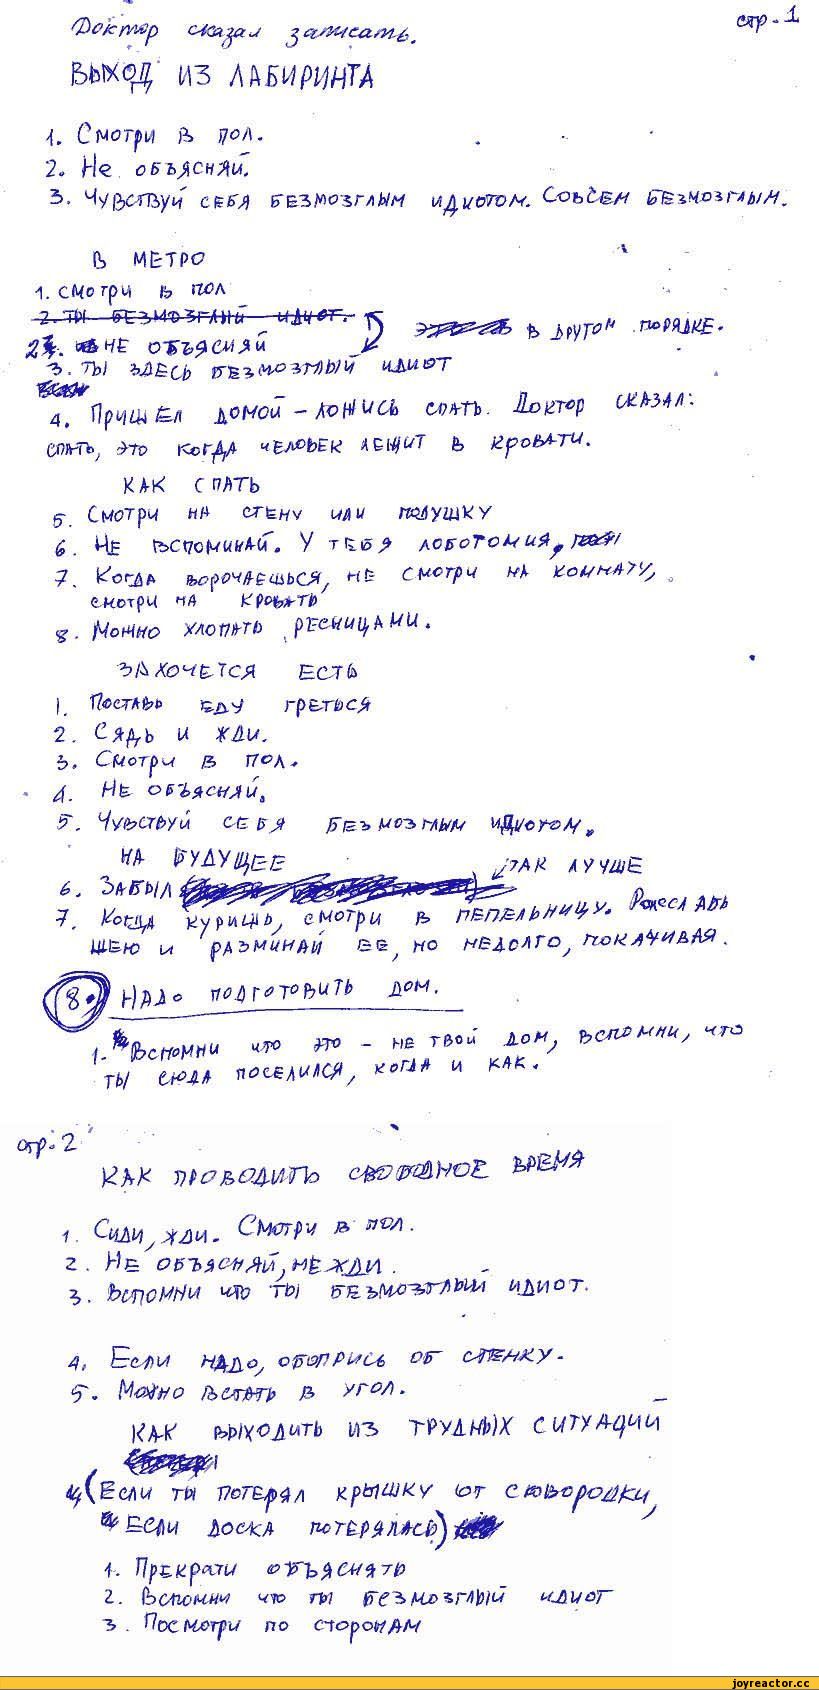 стр. 1
Доктор сказал записать.
ВЫХОД ИЗ ЛАБИРИНТА
1. Смотри в пол.
2. Не объясняй.
3. Чувствуй себя безмозглым идиотом. Совсем безмозглым.
В МЕТРО
1. смотри в пол
2. ты безмозглый идиот.
в другом порядке.
2. не объясняй
3. ты здесь безмозглый идиот
4. Пришел домой – ложись спать. Доктор сказал:
спать, это когда человек лежит в кровати.
КАК СПАТЬ
5. Смотри на стену или подушку
6. Не вспоминай. У тебя лоботомия,
7. Когда ворочаешься, не смотри на комнату,
смотри на кровать
8. Можно хлопать ресницами.
ЗАХОЧЕТСЯ ЕСТЬ
1. Поставь еду греться
2. Сядь и жди.
3. Смотри в пол.
4. Не объясняй.
5. Чувствуй себя безмозглым идиотом.
НА БУДУЩЕЕ
так лучше
6. Забыл
7. Когда куришь, смотри в пепельницу. Расслабь
шею и разминай ее, но недолго, покачивая.
8. Надо подготовить дом.
1. Вспомни что это – не твой дом, вспомни, что
ты сюда поселился, когда и как.
стр. 2
КАК ПРОВОДИТЬ СВОБОДНОЕ ВРЕМЯ
1. Сиди, жди. Смотри в пол.
2. Не объясняй, не жди.
3. Вспомни что ты безмозглый идиот.
4. Если надо, обопрись об стенку.
5. Можно встать в угол.
КАК ВЫХОДИТЬ ИЗ ТРУДНЫХ СИТУАЦИЙ
(Если ты потерял крышку от сковородки,
Если доска потерялась)
1. Прекрати объяснять
2. Вспомни что ты безмозглый идиот
3. Посмотри по сторонам
joyreactor.cc